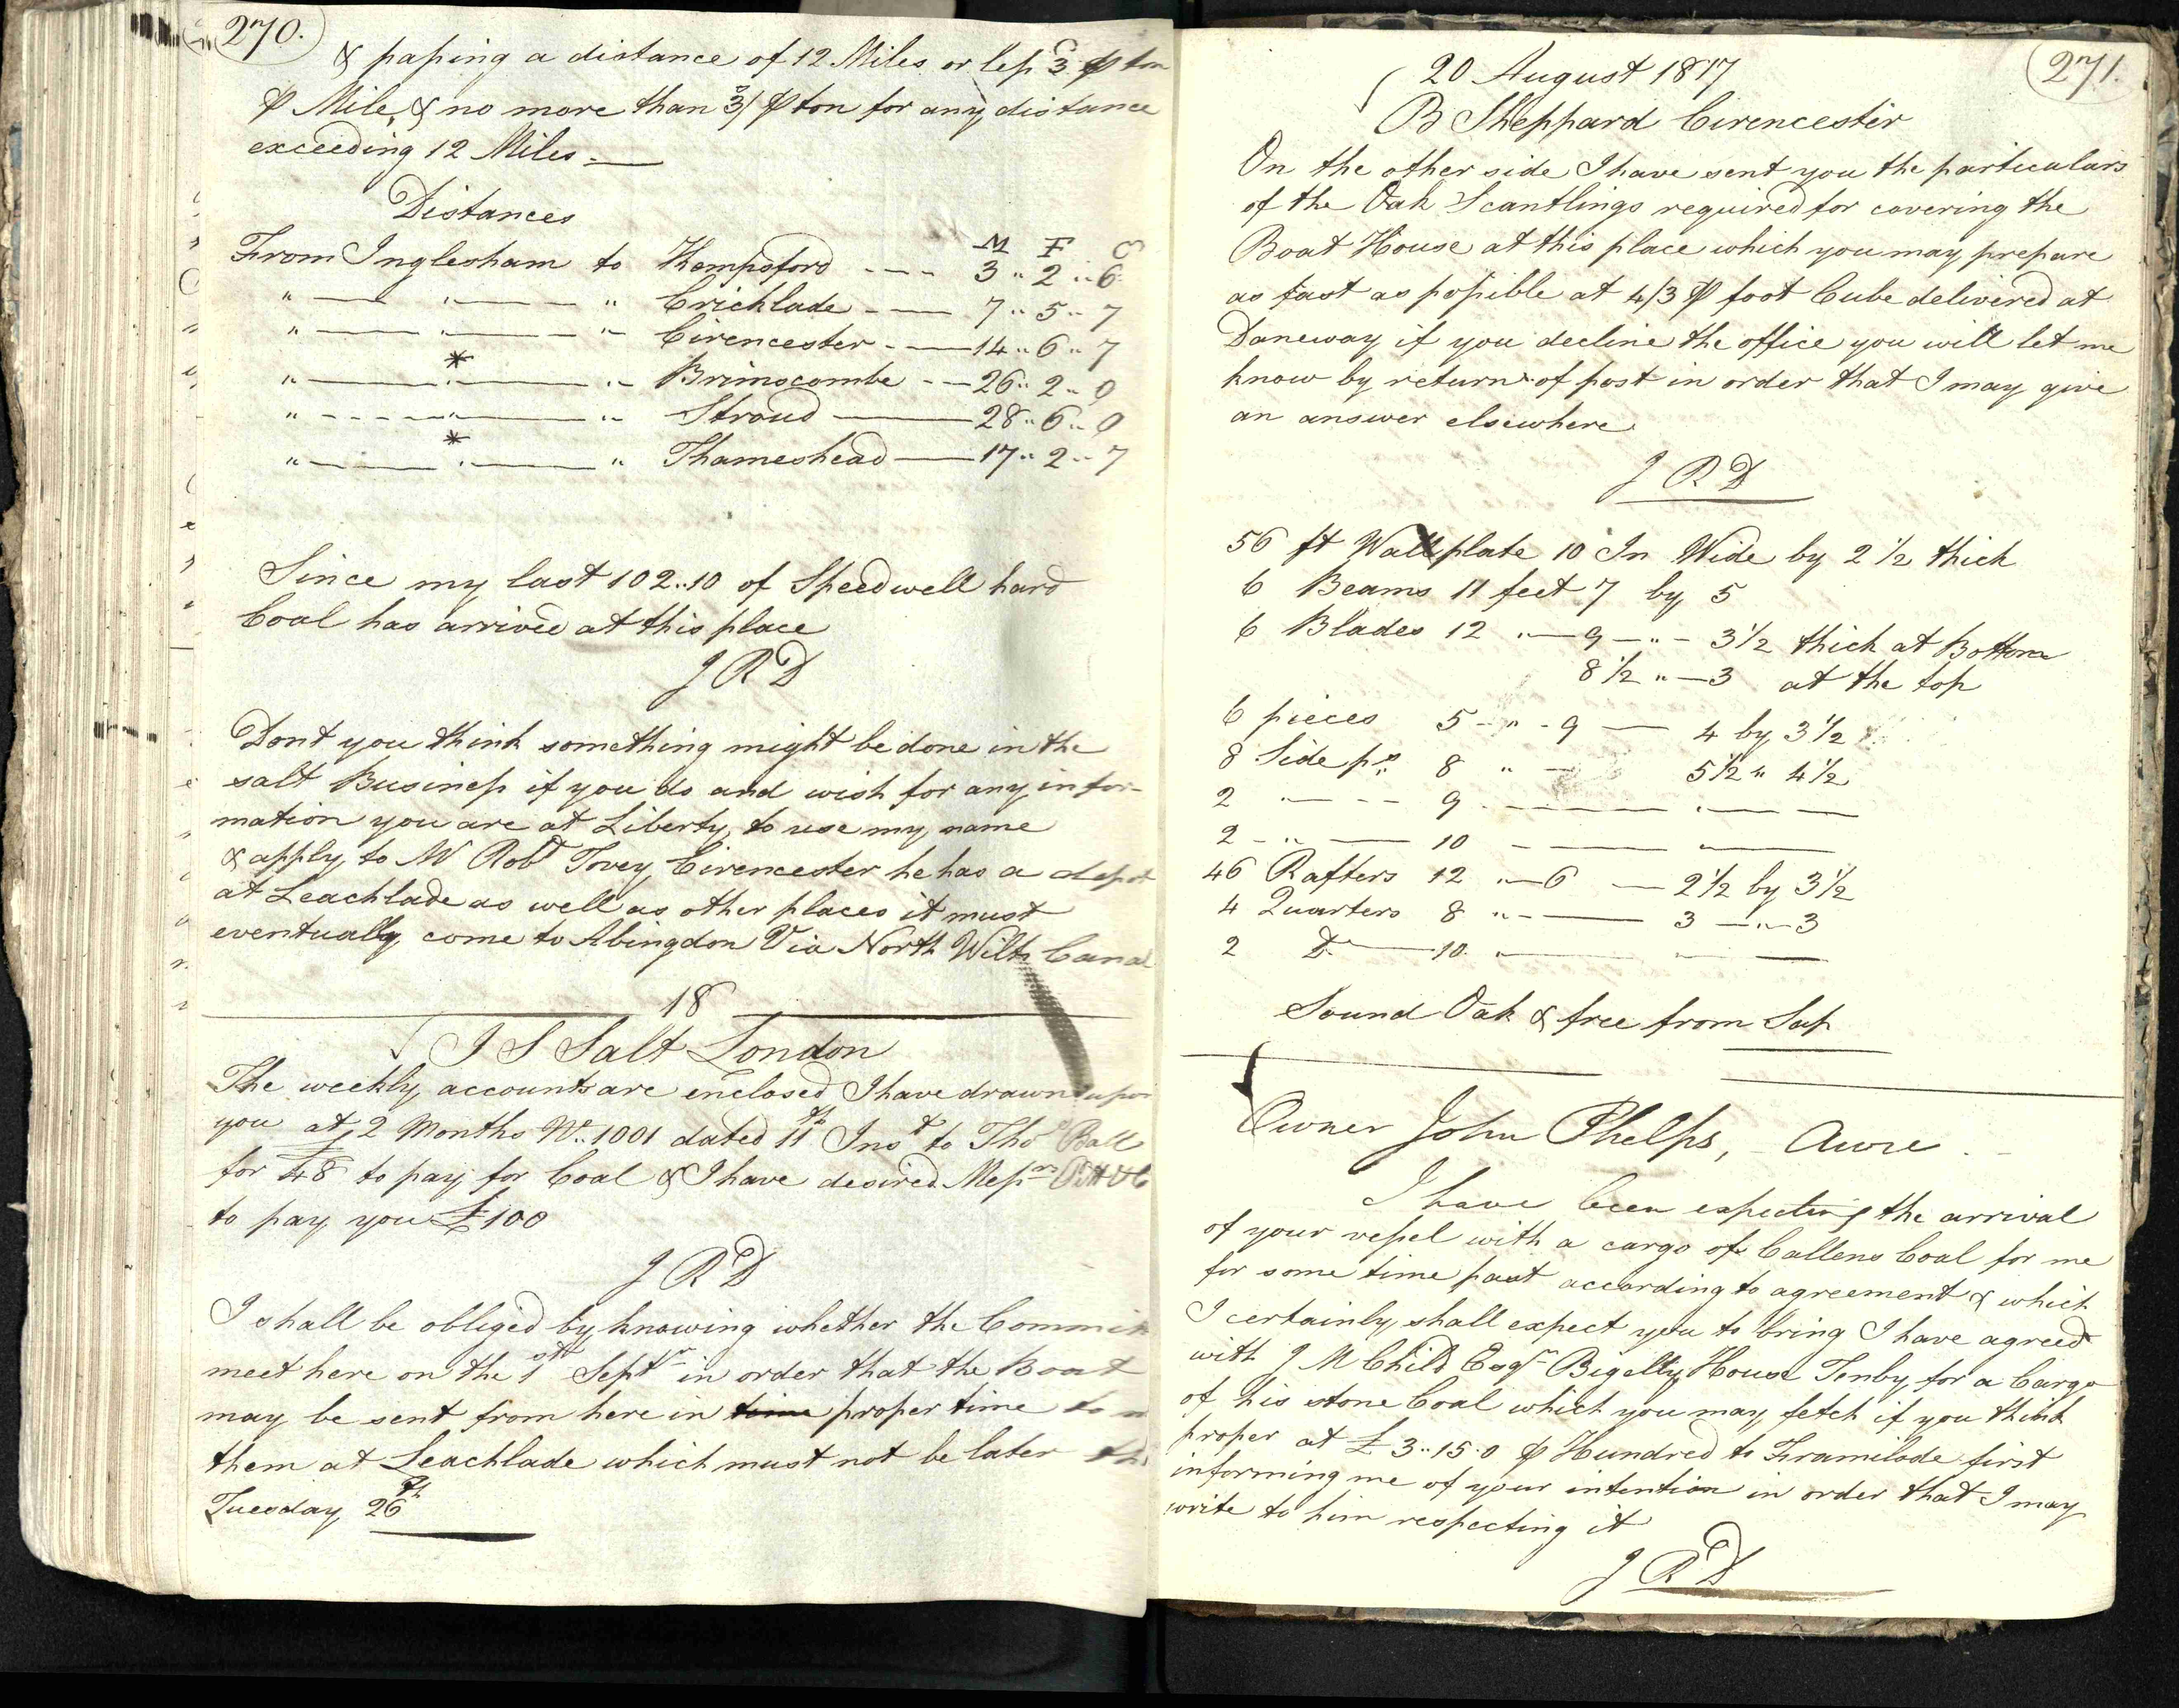 270.
& passing a distance of 12 Miles or less 3d ⅌ ton
⅌ Mile, & no more than 3/ ⅌ ton for any distance
exceeding 12 Miles.—
Distances
M F C
From Inglesham to Kempsford ---- 3 " 2 " 6
" — " — " Cricklade - — 7 " 5 " 7
" — " — " Cirencester - — 14 " 6 " 7
" — * " — " Brimscombe - — 26 " 2 " 0
" - - - - " — " Stroud — 28 " 6 " 0
" — * " — " Thameshead — 17 " 2 " 7
Since my last 102..10 of Speedwell hard
Coal has arrived at this place
J R D
Dont you think something might be done in the
salt Business if you do and wish for any infor-
mation you are at Liberty to use my name
& apply to Mr Robt Tovey Cirencester he has a depot
at Leachlade as well as other places it must
eventually come to Abingdon Via North Wilts Canal
18
J S Salt London
The weekly accounts are enclosed I have drawn upon
you at 2 Months No. 1001 dated 11th Inst to Thos Ball
for £48 to pay for Coal & I have desired Messrs
to pay you £100
J R D
I shall be obliged by knowing whether the Commit
meet here on the 1st Septr in order that the Boat
may be sent from here in time proper time to
them at Leachlade which must not be later
Tuesday 26th
271.
20 August 1817
B Sheppard Cirencester
On the other side I have sent you the particulars
of the Oak Scantlings required for covering the
Boat House at this place which you may prepare
as fast as possible at 4/3 ⅌ foot Cube delivered at
Daneway if you decline the office you will let me
know by return of post in order that I may give
an answer elsewhere
J R D
56 ft Wallplate 10 In Wide by 2 1/2 thick
6 Beams 11 feet 7 by 5
6 Blades 12 " — 9 — " - 3 1/2 thick at Bottom
8 1/2 " — 3 at the top
6 pieces 5 - " - 9 — 4 by 3 1/2
8 Side ps 8 " — 5 1/2 " 4 1/2
2 " — - - 9 - — " — —
2 - " — 10 - — " —
46 Rafters 12 " — 6 — 2 1/2 by 3 1/2
4 Quarters 8 " - — 3 — " — 3
2 Do — 10 " — " —
Sound Oak & free from Sap
Owner John Phelps, Awre
I have been expecting the arrival
of your vessel with a cargo of Callens Coal for me
for some time past according to agreement & which
I certainly shall expect you to bring I have agreed
with J M Child Esqr Bigelly House Tenby for a Cargo
of his stone Coal which you may fetch if you think
proper at £3..15.0 ⅌ Hundred to Framilode first
informing me of your intention in order that I may
write to him respecting it
J R D